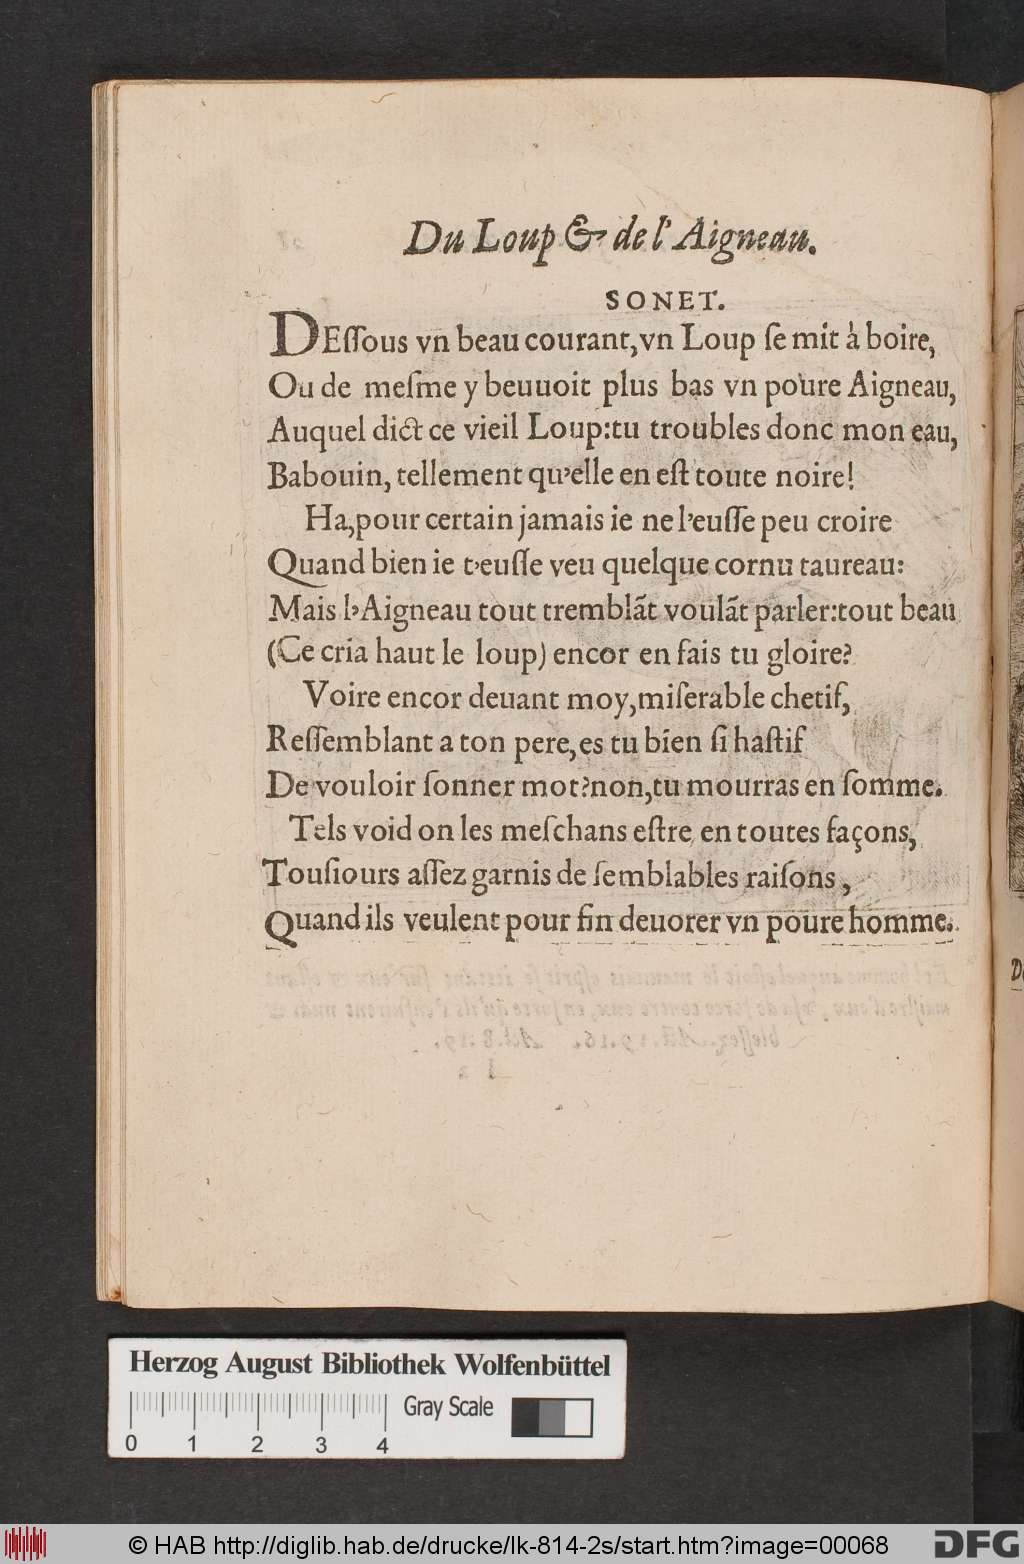 Du Loup & de l'Aigneau.
SONET.
DEſſous vn beau courant, vn Loup ſe mit à boire,
Ou de meſme y beuuoit plus bas vn poure Aigneau,
Auquel dict ce vieil Loup: tu troubles donc mon eau,
Babouin, tellement qu'elle en eſt toute noire!
Ha, pour certain jamais ie ne l'euſſe peu croire
Quand bien ie t'euſſe veu quelque cornu taureau:
Mais l'Aigneau tout tremblãt voulãt parler: tout beau
(Ce cria haut le loup) encor en fais tu gloire?
Voire encor deuant moy, miſerable chetif,
Reſſemblant a ton pere, es tu bien ſi haſtif
De vouloir ſonner mot? non, tu mourras en ſomme.
Tels void on les meſchans eſtre en toutes façons,
Touſiours aſſez garnis de ſemblables raiſons,
Quand ils veulent pour fin deuorer vn poure homme.
Herzog August Bibliothek Wolfenbüttel
Gray Scale
0 1 2 3 4
© HAB http://diglib.hab.de/drucke/lk-814-2s/start.htm?image=00068
DFG